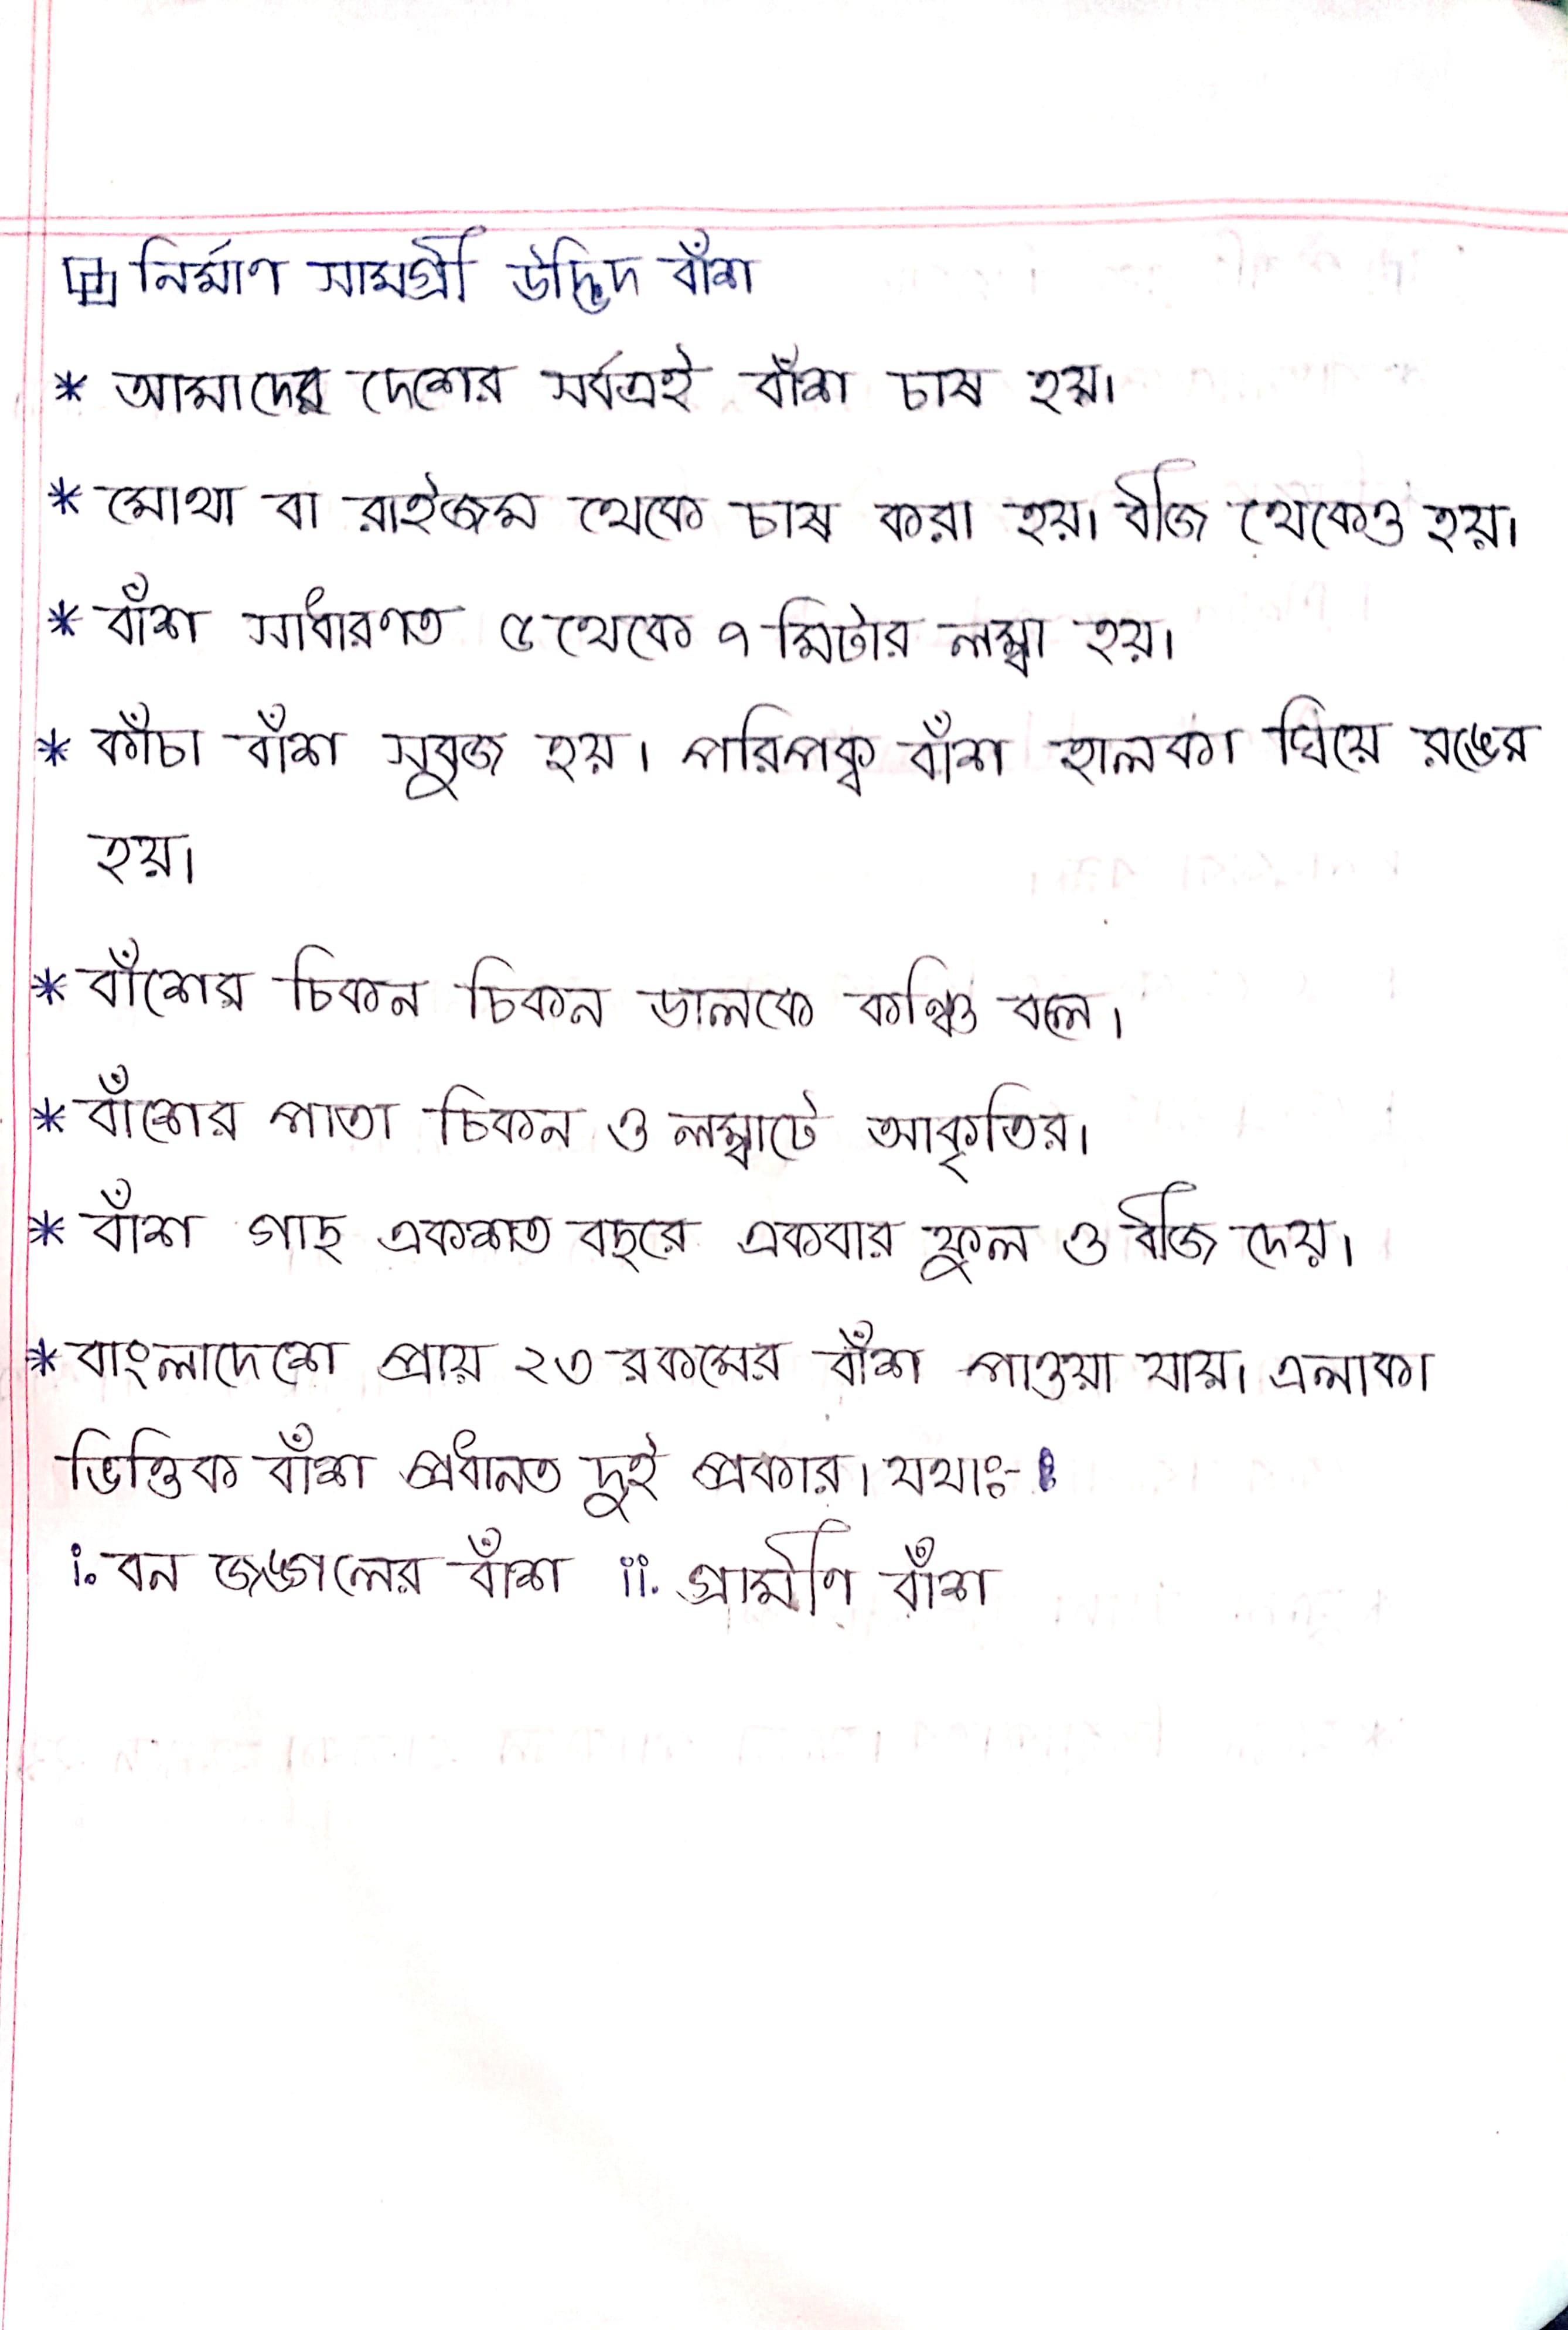 নির্মাণ সামগ্রী উদ্ভিদ বাঁশ
* আমাদের দেশের সর্বত্রই বাঁশ চাষ হয়।
* মোথা বা রাইজম থেকে চাষ করা হয়। বীজ থেকেও হয়।
* বাঁশ সাধারণত ৫ থেকে ৭ মিটার লম্বা হয়।
* কাঁচা বাঁশ সবুজ হয়। পরিপক্ব বাঁশ হালকা ঘিয়ে রঙের
হয়।
* বাঁশের চিকন চিকন ডালকে কঞ্চি বলে।
* বাঁশের পাতা চিকন ও লম্বাটে আকৃতির।
* বাঁশ গাছ একশত বছরে একবার ফুল ও বীজ দেয়।
* বাংলাদেশে প্রায় ২৩ রকমের বাঁশ পাওয়া যায়। এলাকা
ভিত্তিক বাঁশ প্রধানত দুই প্রকার। যথাঃ-
i. বন জঙ্গলের বাঁশ ii. গ্রামীণ বাঁশ